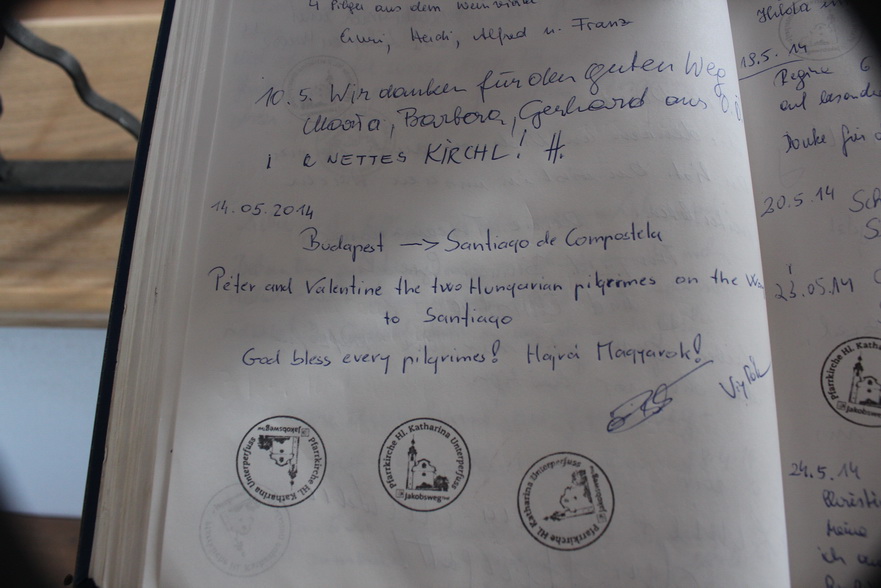 4 Pilger aus dem
Heidi, Alfred u. Franz
10.5. Wir danken für den guten Weg
Maria, Barbara, Gerhard aus
NETTES KIRCHL! H.
14.05.2014
Budapest —> Santiago de Compostela
Péter and Valentine the two Hungarian pilgrimes on the Way
to Santiago
God bless every pilgrimes! Hajrá Magyarok!
Pfarrkirche Hl. Katharina Unterperfuss
Jakobsweg
Pfarrkirche Hl. Katharina Unterperfuss
Jakobsweg
Pfarrkirche Hl. Katharina Unterperfuss
Jakobsweg
19.5.14
Regina
Danke für
20.5.14
23.05.14
Pfarrkirche Hl. Katha
Jakobsweg
24.5.14
Christi
Meine
ich